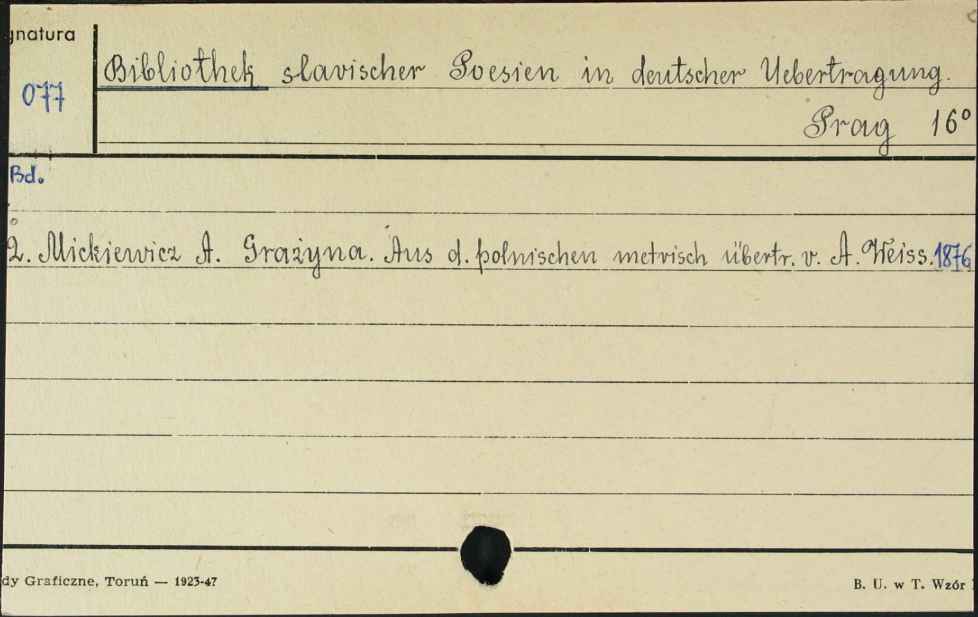 gnatura
077
Bibliothek slavischer Poesien in deutscher Uebertragung.
Prag 16°
Bd.
2. Mickiewicz A. Grażyna. Aus d. polnischen metrisch übertr. v. A. Weiss. 1876
dy Graficzne, Toruń — 1923-47
B. U. w T. Wzór